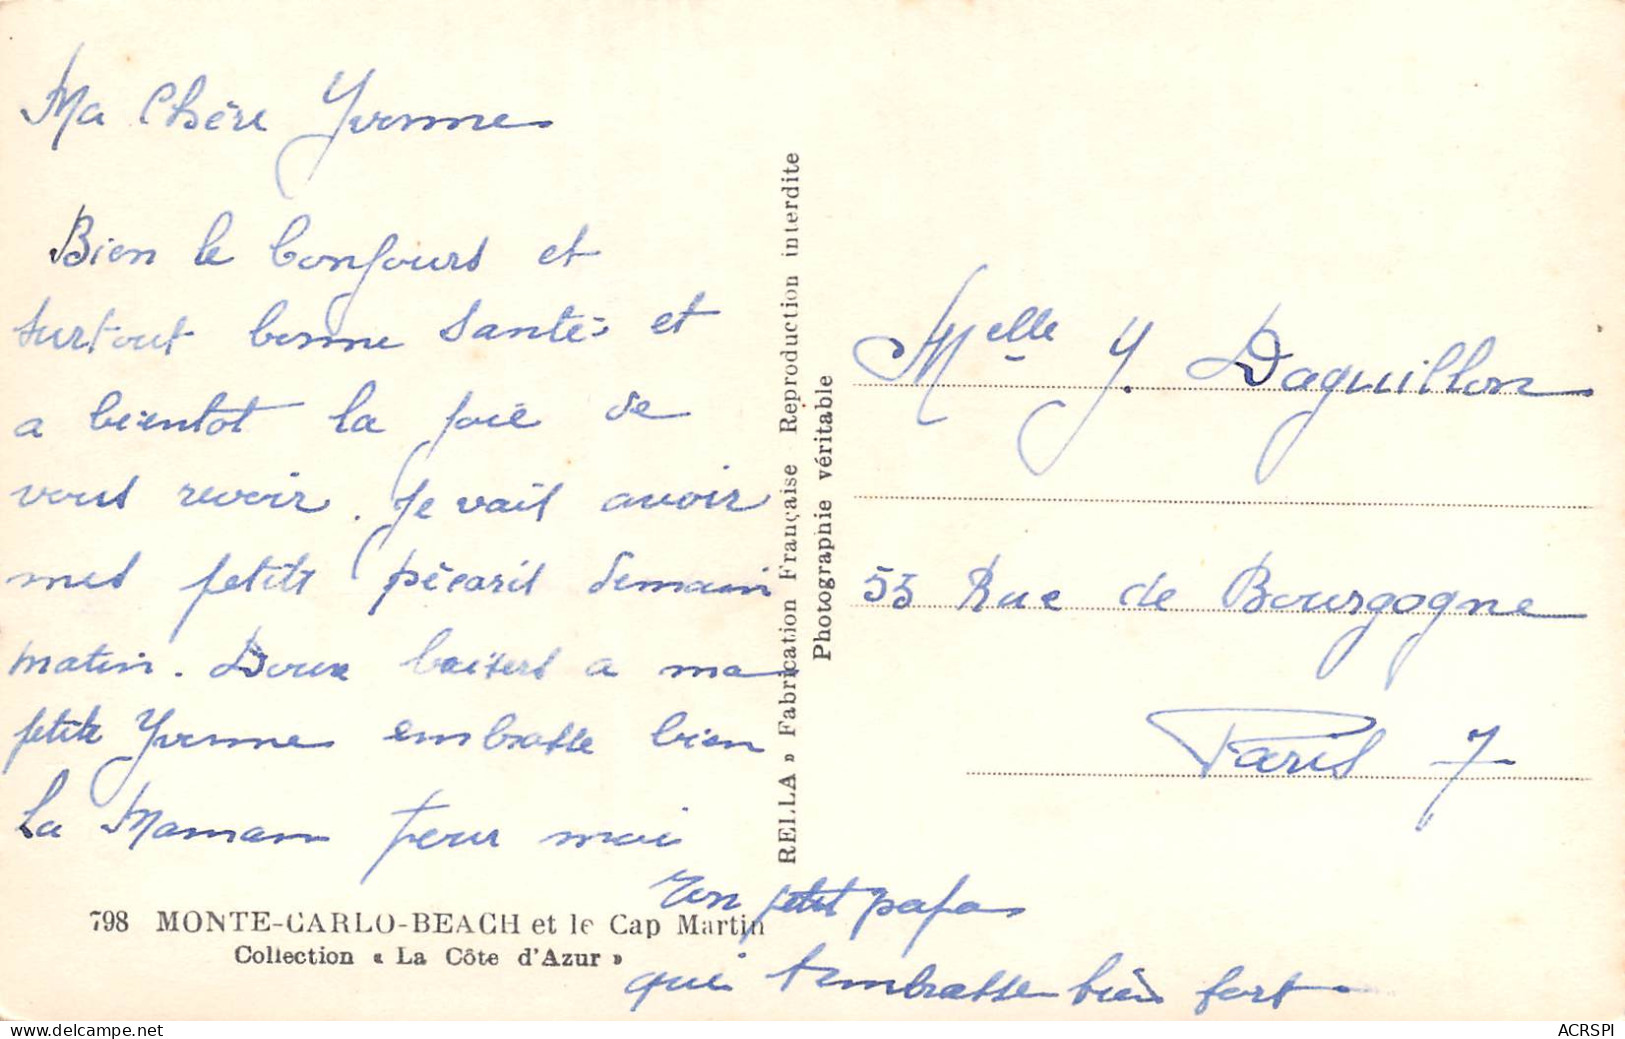 Ma Chère Yvonne
Bien le bonjours et
surtout bonne santé et
a bientot la joie de
vous revoir. Je vais avoir
mes petits pécaris demain
matin. Doux baisers a ma
petite Yvonne embrasse bien
La Maman pour moi
Ton petit papa
qui t'embrasse bien fort
798 MONTE-CARLO-BEACH et le Cap Martin
Collection « La Côte d'Azur »
RELLA » Fabrication Française Reproduction interdite
Photographie véritable
Melle Y. Daguillon
53 Rue de Bourgogne
Paris 7
ACRSPI